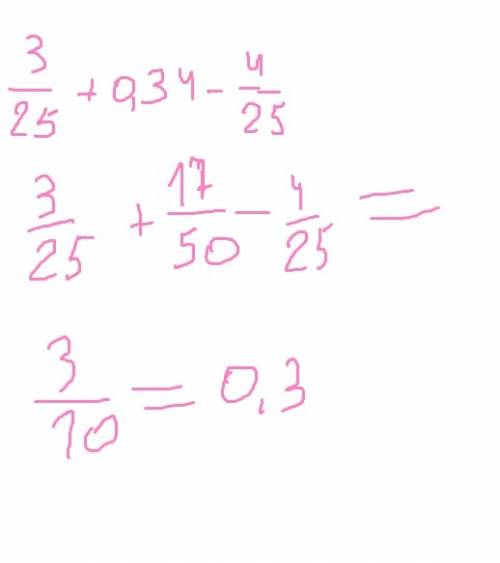 3/25 + 0,34 - 4/25
3/25 + 17/50 - 4/25 =
3/10 = 0.3